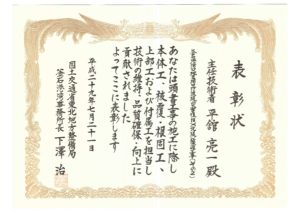 表彰状
主任技術者 平舘 亮一 殿
あなたは頭書工事の施工に際し
本体工、被覆・根固工、
上部工および付属工を担当し
技術の発揮、品質確保・向上に
貢献されました
よってここに表彰します
平成二十九年七月二十一日
国土交通省東北地方整備局
釜石港湾事務所長 下澤 治